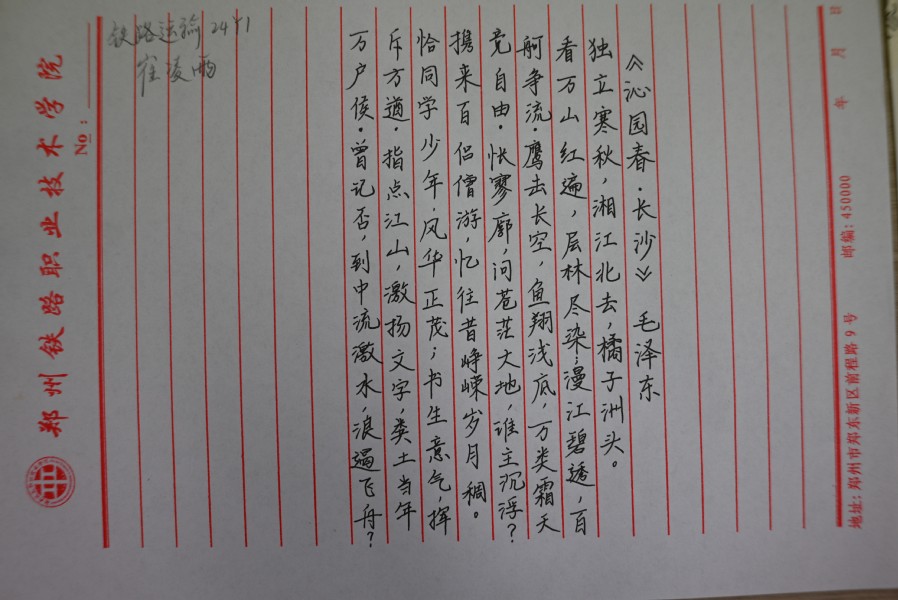 郑州铁路职业技术学院
No:
《沁园春·长沙》 毛泽东
独立寒秋,湘江北去,橘子洲头。
看万山红遍,层林尽染;漫江碧透,百
舸争流。鹰去长空,鱼翔浅底,万类霜天
竞自由。怅寥廓,问苍茫大地,谁主沉浮?
携来百侣僧游,忆往昔峥嵘岁月稠。
恰同学少年,风华正茂;书生意气,挥
斥方遒。指点江山,激扬文字,类土当年
万户侯。曾记否,到中流激水,浪遏飞舟?
铁路运输24
崔凌雨
年 月 日
地址:郑州市郑东新区前程路9号 邮编:450000